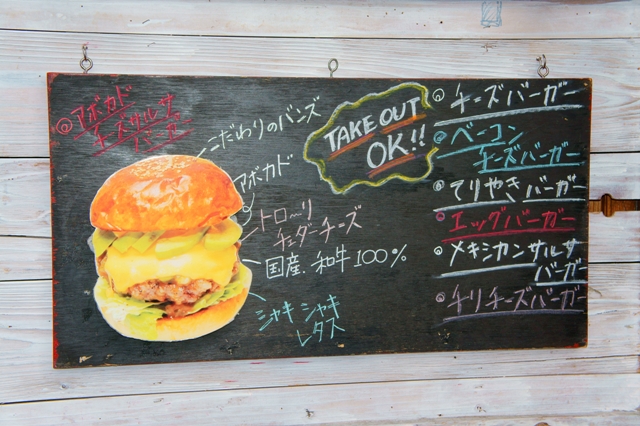 ◎アボカド
チーズサルサ
バーガー
こだわりのバンズ
アボカド
トロ〜リ
チェダーチーズ
国産.和牛100%
シャキシャキ
レタス
TAKE OUT
OK!!
◎チーズバーガー
◎ベーコン
チーズバーガー
◎てりやきバーガー
◎エッグバーガー
◎メキシカンサルサ
バーガー
◎チリチーズバーガー